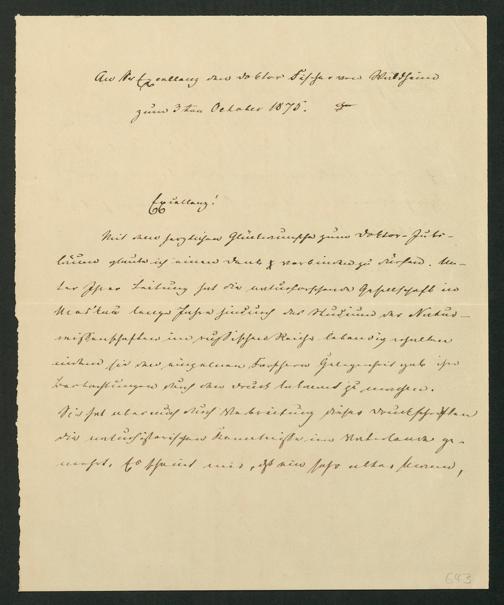 An Se Excellenz den Doktor Fischer von Waldheim
zum 3ten October 1875.
Excellenz!
Mit dem herzlichen Glückwunsche zum Doktor-Jubi-
läum glaube ich einen Dank verbinden zu dürfen. Un-
ter Ihrer Leitung hat die naturforschende Gesellschaft in
Moskau lange Jahre hindurch das Studium der Natur-
wissenschaften im russischen Reiche lebendig erhalten
indem sie den einzelnen Forschern Gelegenheit gab ihre
Beobachtungen durch den Druck bekannt zu machen.
Sie hat aber auch durch Verbreitung dieser Druckschriften
die naturhistorischen Kenntnisse im Vaterlande ge-
mehrt. Es scheint mir, daß ein sehr alter Mann,
643